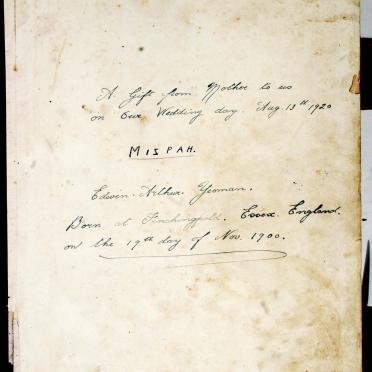 A Gift from Mother to us
on Our Wedding day. Aug. 13th 1920
MISPAH.
Edwin Arthur Yeoman.
Born at Finchingfield. Essex. England.
on the 19th day of Nov. 1900.